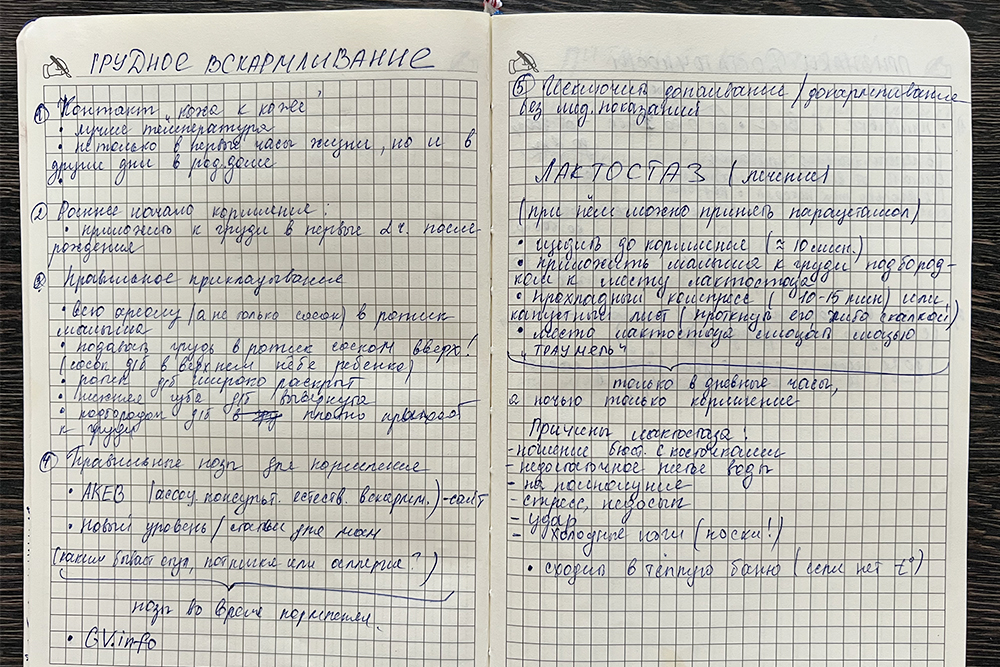 ГРУДНОЕ ВСКАРМЛИВАНИЕ
① Контакт „кожа к коже"
• лучше температура
• не только в первые часы жизни, но и в
другие дни в род.доме
② Раннее начало кормления:
• приложить к груди в первые 2 ч. после
рождения
③ Правильное прикладывание
• всю ареолу (а не только сосок) в ротик
малыша
• подавать грудь в ротик соском вверх!
(сосок д/б в верхнем нёбе ребёнка)
• ротик д/б широко раскрыт
• нижняя губа д/б вывернута
• подбородом д/б в плотно прижат
к груди
④ Правильные позы для кормления
• АКЕВ (ассоц. консульт. естеств. вскармл.) - сайт
• Новый уровень / статьи для мам
(каким бывает стул, потничка или аллергия?)
позы во время кормления.
• GV.info
⑤ Исключить допаивание / докармливание
без мед. показаний
ЛАКТОСТАЗ (лечение)
(при нём можно принять парацетамол)
• сцедить до кормления (≈ 10 мин.)
• приложить малыша к груди подбород-
ком к месту лактостаза
• Прохладный компресс (10-15 мин) или
капустный лист (проткнуть его либо скалкой)
• место лактостаза смазать мазью
„ТРАУМЕЛЬ"
только в дневные часы,
а ночью только кормление
Причины лактостаза:
- ношение бюст. с косточками
- недостаточное питьё воды
- на полнолуние
- стресс, недосып
- удар
- холодные ноги (носки!)
• сходить в тёплую баню (если нет t°)